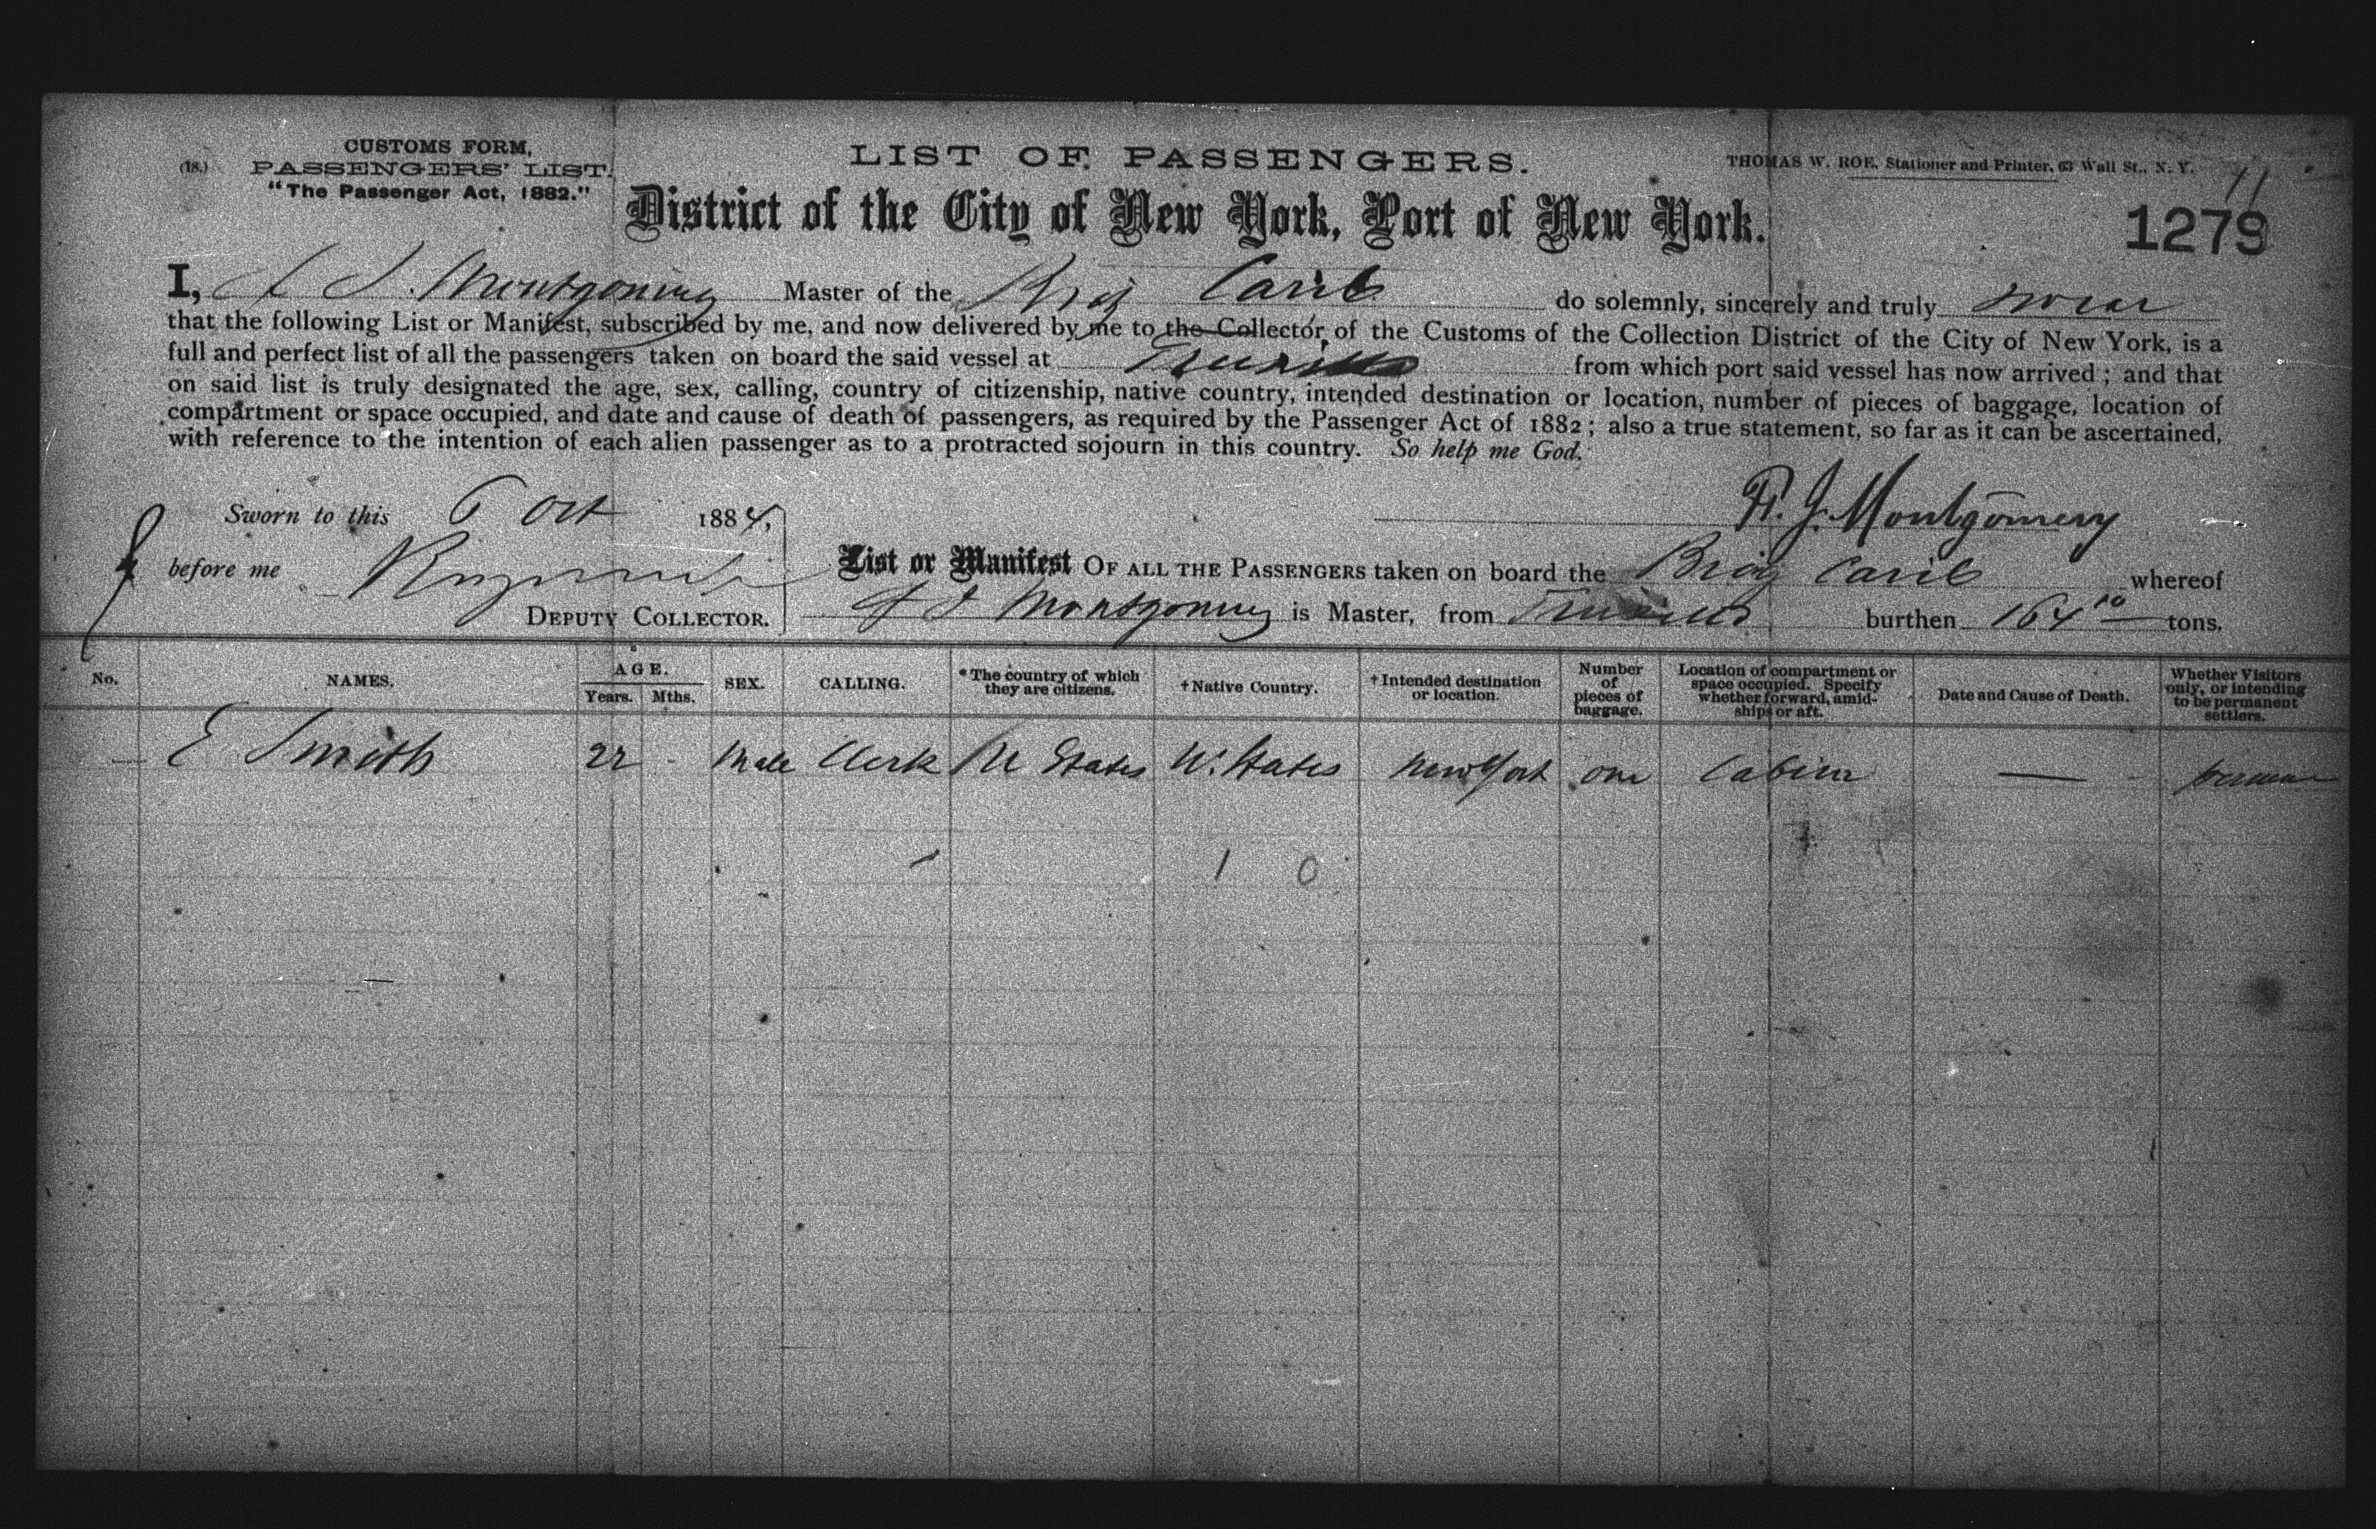 CUSTOMS FORM,
(18.) PASSENGERS' LIST.
"The Passenger Act, 1882."
LIST OF PASSENGERS.
THOMAS W. ROE, Stationer and Printer, 63 Wall St., N. Y.
11
District of the City of New York, Port of New York.
1279
I, J. Montgomery Master of the Brig Carib do solemnly, sincerely and truly swear
that the following List or Manifest, subscribed by me, and now delivered by me to the Collector, of the Customs of the Collection District of the City of New York, is a
full and perfect list of all the passengers taken on board the said vessel at Truxillo from which port said vessel has now arrived; and that
on said list is truly designated the age, sex, calling, country of citizenship, native country, intended destination or location, number of pieces of baggage, location of
compartment or space occupied, and date and cause of death of passengers, as required by the Passenger Act of 1882; also a true statement, so far as it can be ascertained,
with reference to the intention of each alien passenger as to a protracted sojourn in this country. So help me God.
Sworn to this 6 Oct 1884,
J. Montgomery
before me
DEPUTY COLLECTOR.
List or Manifest OF ALL THE PASSENGERS taken on board the Brig Carib whereof
J Montgomery is Master, from Truxillo burthen 164 10 tons.
No. NAMES. AGE. Years. Mths. SEX. CALLING. *The country of which they are citizens. †Native Country. †Intended destination or location. Number of pieces of baggage. Location of compartment or space occupied. Specify whether forward, amidships or aft. Date and Cause of Death. Whether Visitors only, or intending to be permanent settlers.
— E Smith 22 - Male Clerk U States U. States New York one Cabin —
1 0